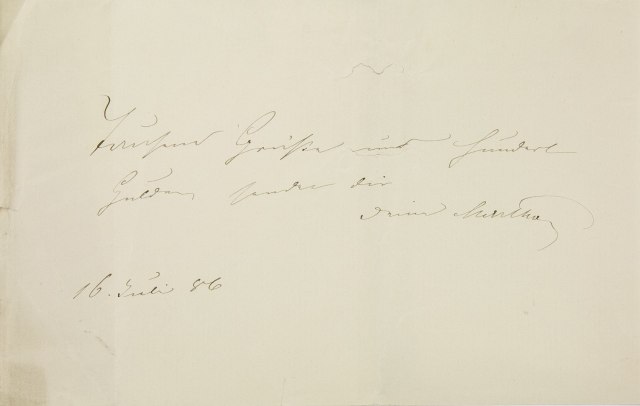 Tausend Grüße und hundert
Gulden sendet dir
deine Martha
16. Juli 86